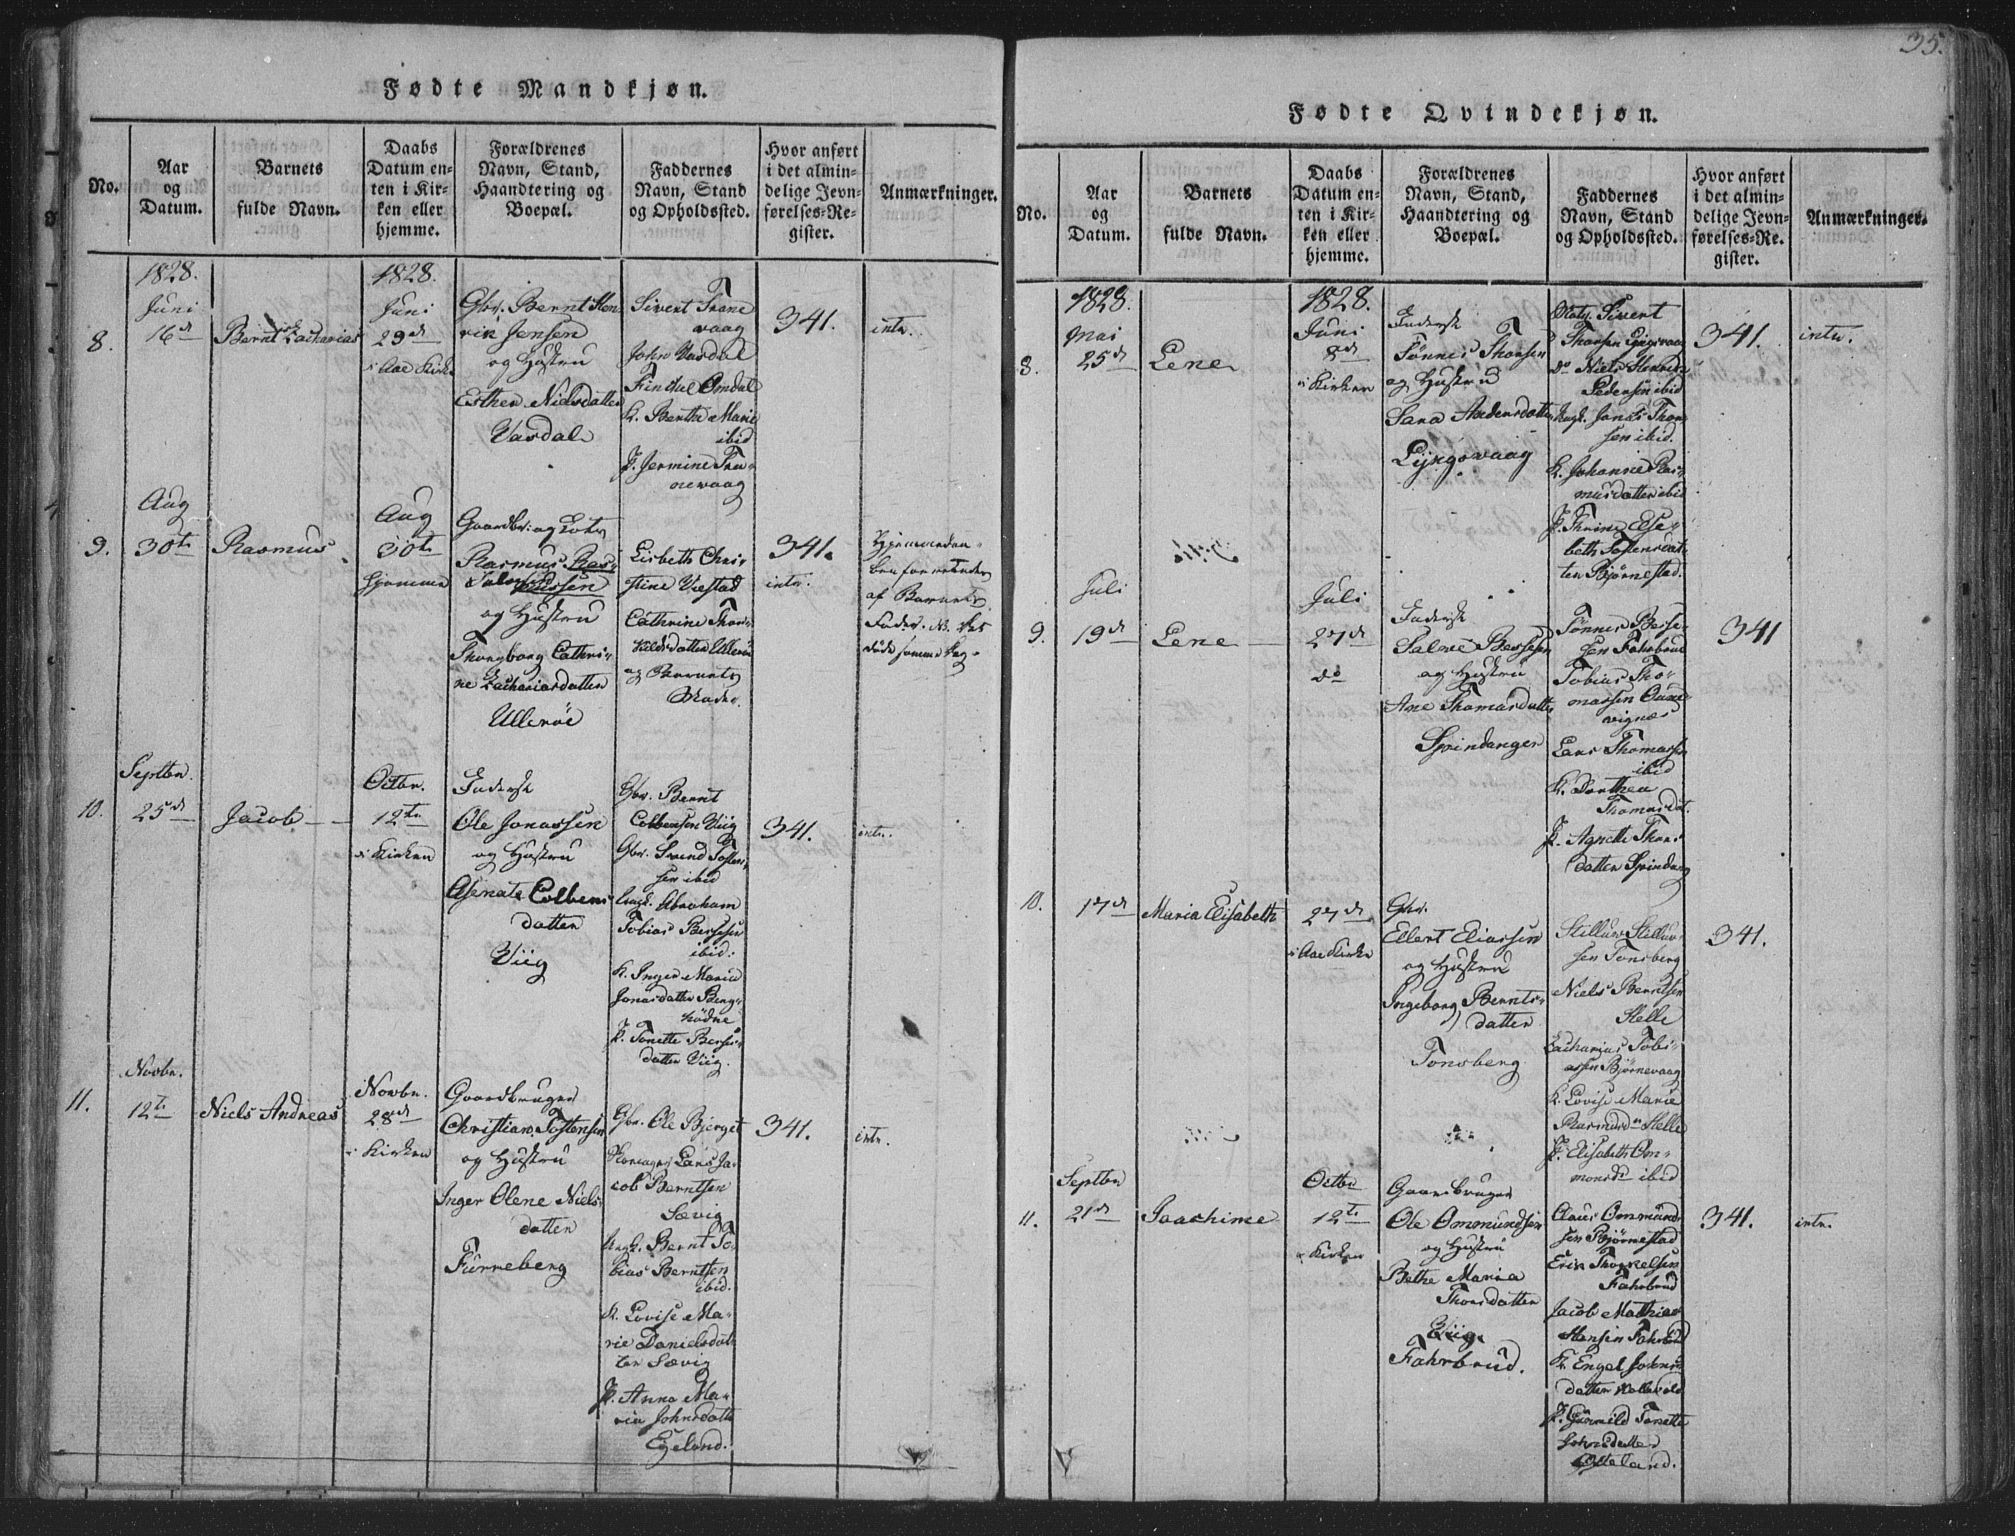 35.
Fødte Mandkjøn.
No.
Aar
og
Datum.
Barnets
fulde Navn.
Daabs
Datum en-
ten i Kir-
ken eller
hjemme.
Forældrenes
Navn, Stand,
Haandtering og
Boepæl.
Faddernes
Navn, Stand
og Opholdssted.
Hvor anført
i det almin-
delige Jevn-
førelses-Re-
gister.
Anmærkninger.
8.
1828.
Juni
16d
Bernt Zacharias
1828.
Juni
29d
i Aae Kirke
Gbr. Bernt Hen-
rik Jensen
og Hustru
Esther Nielsdatter
Vasdal
Sivert Trane
vaag
John Vasdal
Findal Omdal
K. Berthe Marie
ibid
P. Jermine Tra-
nevaag
341.
intr.
9.
Aug
30te
Rasmus
Aug
30te
hjemme
Gaardbr. og Lots
Rasmus
og Hustru
Thongborg Cathri-
ne Zachariasdatter
Ullerøe
Lisbeth Chri-
stine Vaestad
Cathrine Thor-
kildsdatter Ullerøe
og Barnets
Moder.
341.
intr.
af Barnets
Fader. No.
døde samme Dag.
10.
Septbr.
25d
Jacob
Octbr.
12te
i Kirken
Inderst
Ole Jonassen
og Hustru
Asenate Colbens
datter
Viig
Gbr. Bernt
Colbensen Viig
Gbr. Svend Tosten-
sen ibid
Ungk. Abraham
Tobias Bersesen
ibid.
K. Inger Maria
Jonasdatter Berg-
hødne
P. Tonette Berses-
datter Viig.
341.
intr.
11.
Novbr.
12te
Niels Andreas
Novbr.
28de
i Kirken
Gaardbruger
Christian Tostensen
og Hustru
Inger Olene Niels-
datter
Furreberg
Gbr. Ole Bjerget
Lars Ja-
cob Berntsen
Sævig
Ungk. Bernt To-
bias Berntsen
ibid.
K. Lovise Ma-
rie Danielsdat-
ter Sævig
P. Anna Ma-
ria Johnsdatter
Egeland.
341.
intr.
Fødte Qvindekjøn.
No.
Aar
og
Datum.
Barnets
fulde Navn.
Daabs
Datum en-
ten i Kir-
ken eller
hjemme.
Forældrenes
Navn, Stand,
Haandtering og
Boepæl.
Faddernes
Navn, Stand
og Opholdssted.
Hvor anført
i det almin-
delige Jevn-
førelses-Re-
gister.
Anmærkninger.
8.
1828.
Mai
25d
Lene
1828.
Juni
8d
i Kirken
Inderst
Tønnes Thorsen
og Hustru
Sara Andersdatter
Lyngsvaag
Sivert
Thorsen Lyngsvaag
do Niels Henrik
Pedersen ibid
Ungk. Jonas Thor-
sen ibid.
K. Johanne Ras-
musdatter ibid
P. Thrine Else-
beth Tostensdat-
ter Bjørnestad.
341.
intr.
9.
Juli
19d
Lene
Juli
27d
do
Inderst
Salve Bersesen
og Hustru
Ane Thomasdatter
Spindanger
Tønnes Berse-
sen Fahrbrud
Tobias Tho-
massen Oure-
vignæs
Lars Thomassen
ibid
K. Dorthea
Thomasdat.
P. Agnette Thors-
datter Spindang
341
10.
17d
Maria Elisabeth
27d
i Aae Kirke
Gbr.
Ellert Eliassen
og Hustru
Ingeborg Bernts-
datter
Tonsberg
Stillur Stillur-
sen Tonsberg
Niels Berntsen
Stelle
Zacharias Tobi-
assen Bjørnevaag
K. Lovise Marie
Rasmusd. Stelle
P. Elisabeth Om-
monsdr ibid
341.
11.
Septbr
21d
Joachime
Octbr
12te
i Kirken
Gaardbruger
Ole Ommundsen
og Hustru
Bethe Maria
Thorsdatter
Viig.
Fahrbrud.
Claus Ommund-
sen Bjørnestad
Erik Thorkelsen
Fahrbrud
Jacob Mathias
Hansen Fahrbrud
K. Engel Johns-
datter
P. Gunnild Tonette
Johnsdatter
341.
intr.